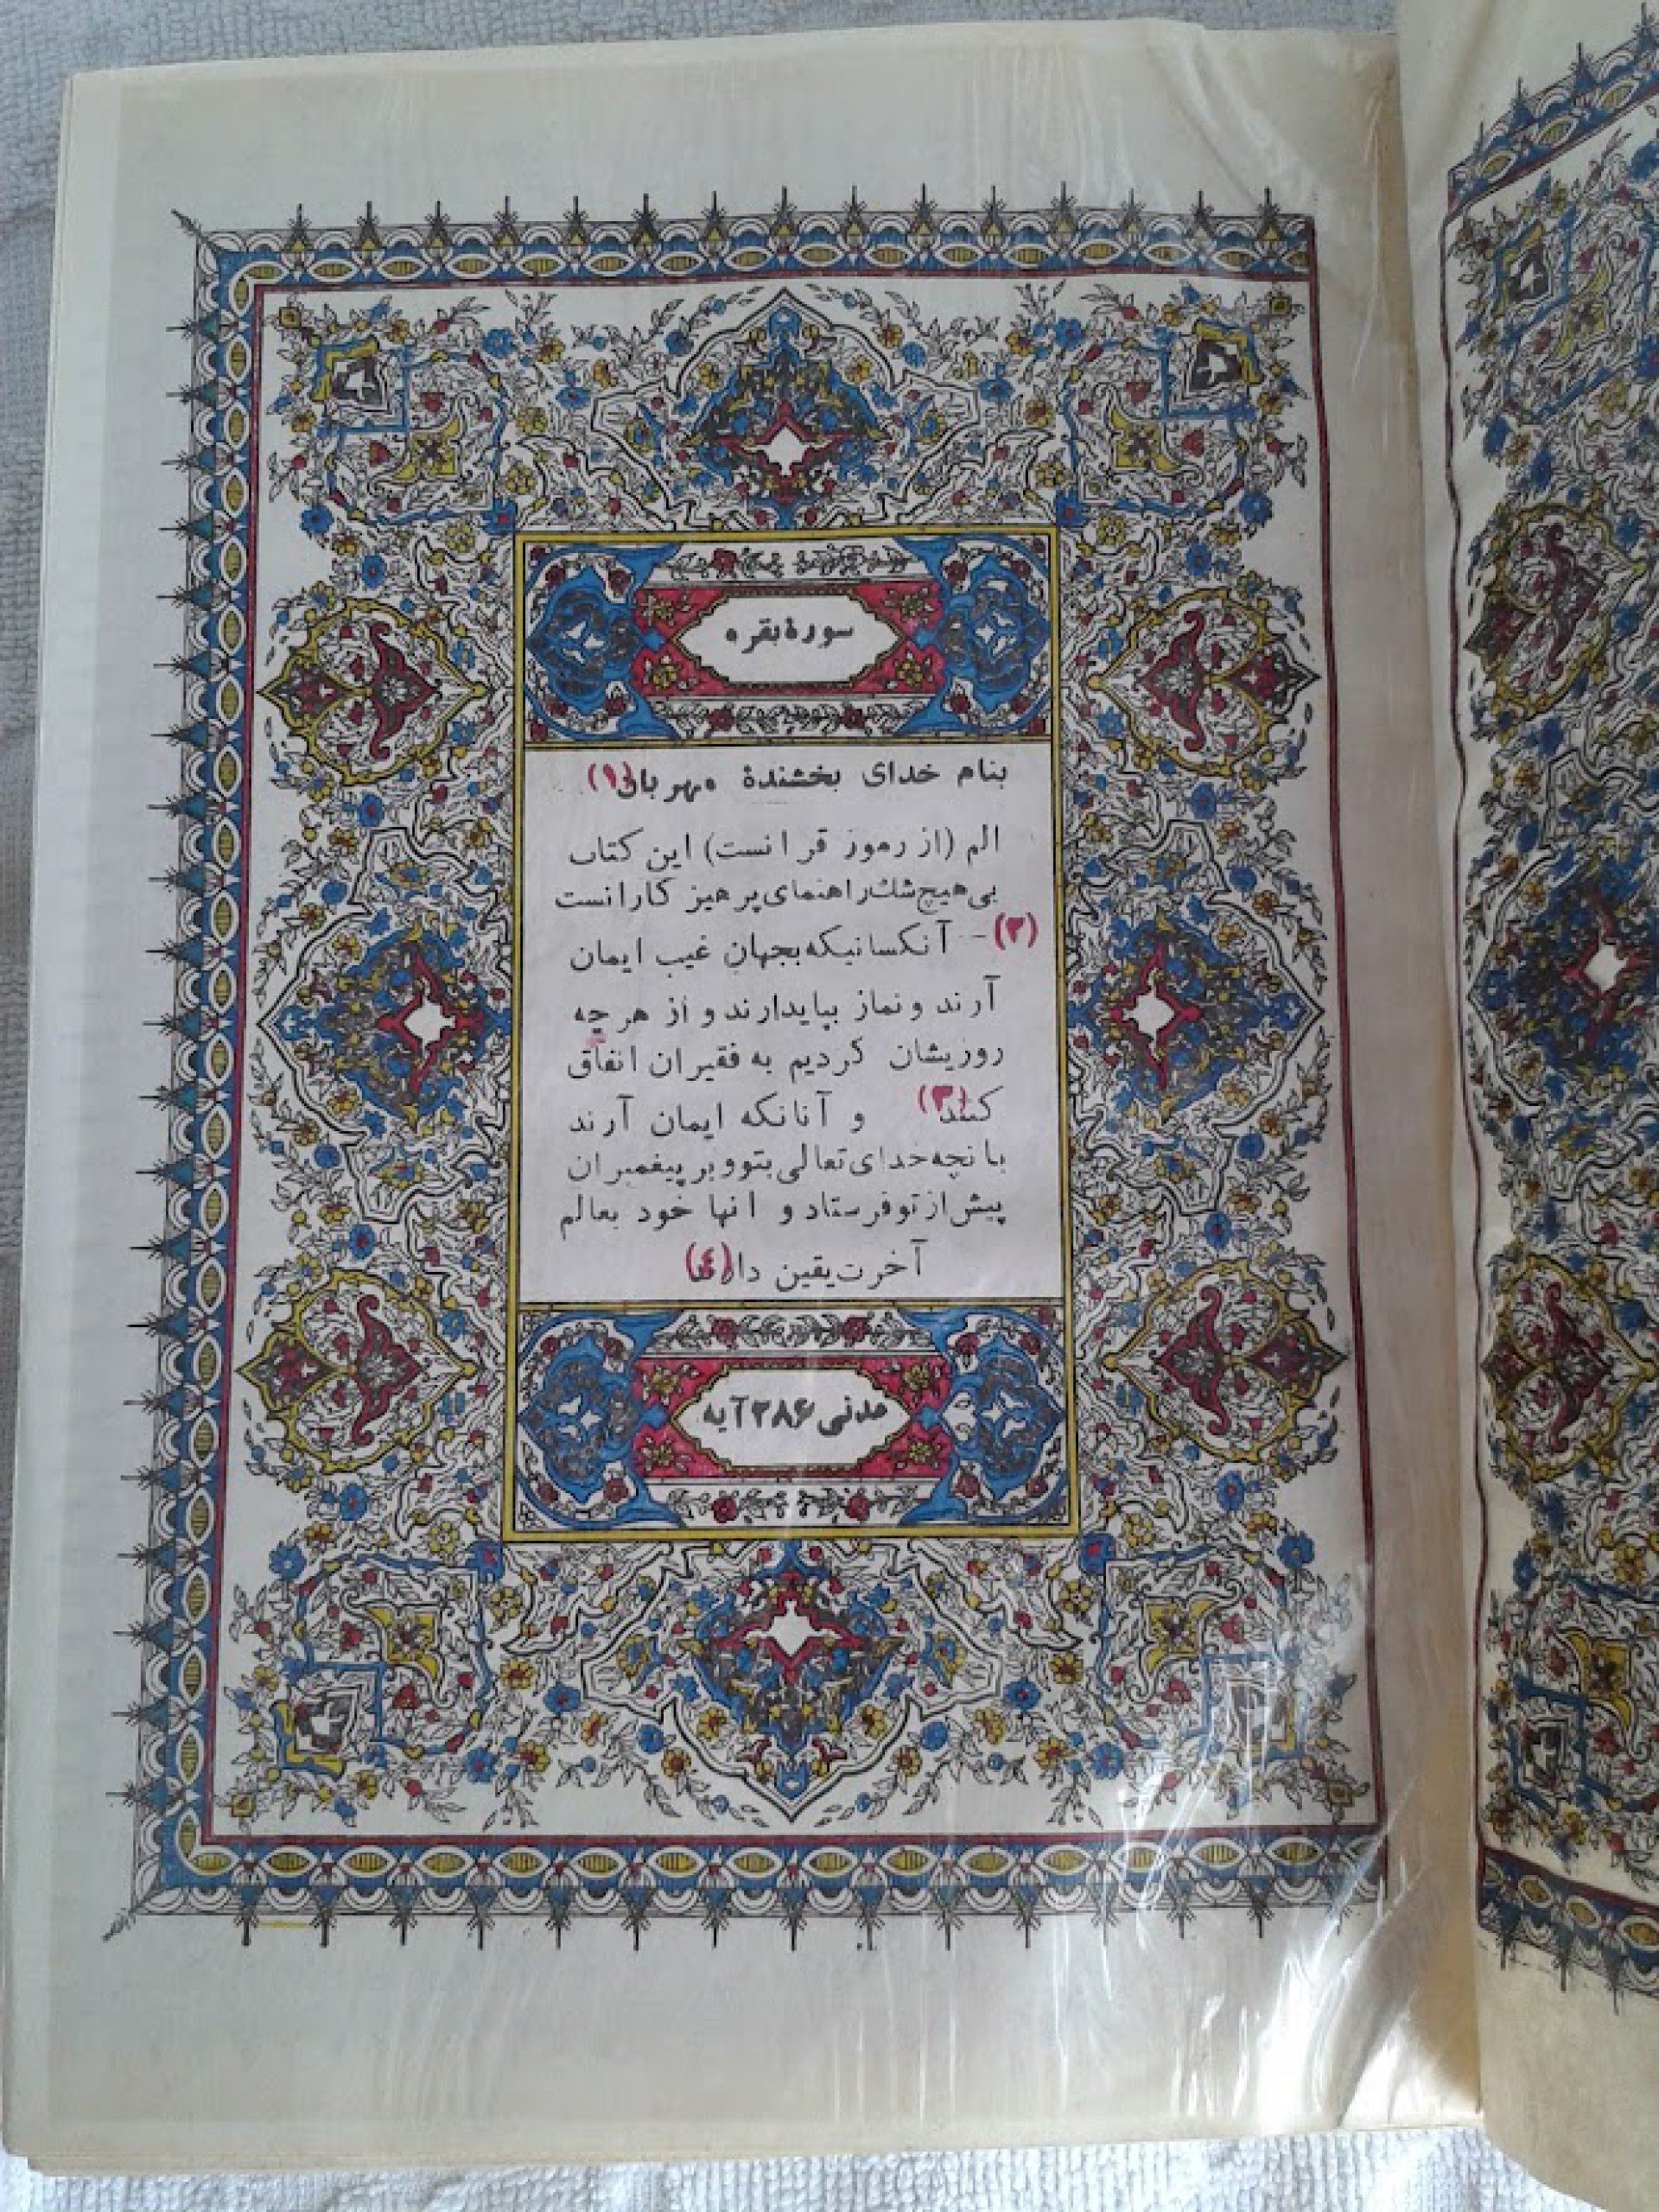 سورهٔ بقره
بنام خدای بخشندهٔ مهربان (۱)
الم (از رموز قرانست) این کتاب
بی هیچ شک راهنمای پرهیز کارانست
(۲) - آنکسانیکه بجهان غیب ایمان
آرند و نماز بپایدارند و از هر چه
روزیشان کردیم به فقیران انفاق
کنند (۳) و آنانکه ایمان آرند
بانچه خدای تعالی بتو و بر پیغمبران
پیش از تو فرستاد و انها خود بعالم
آخرت یقین دارند (٤)
مدنی ۲۸۶ آیه